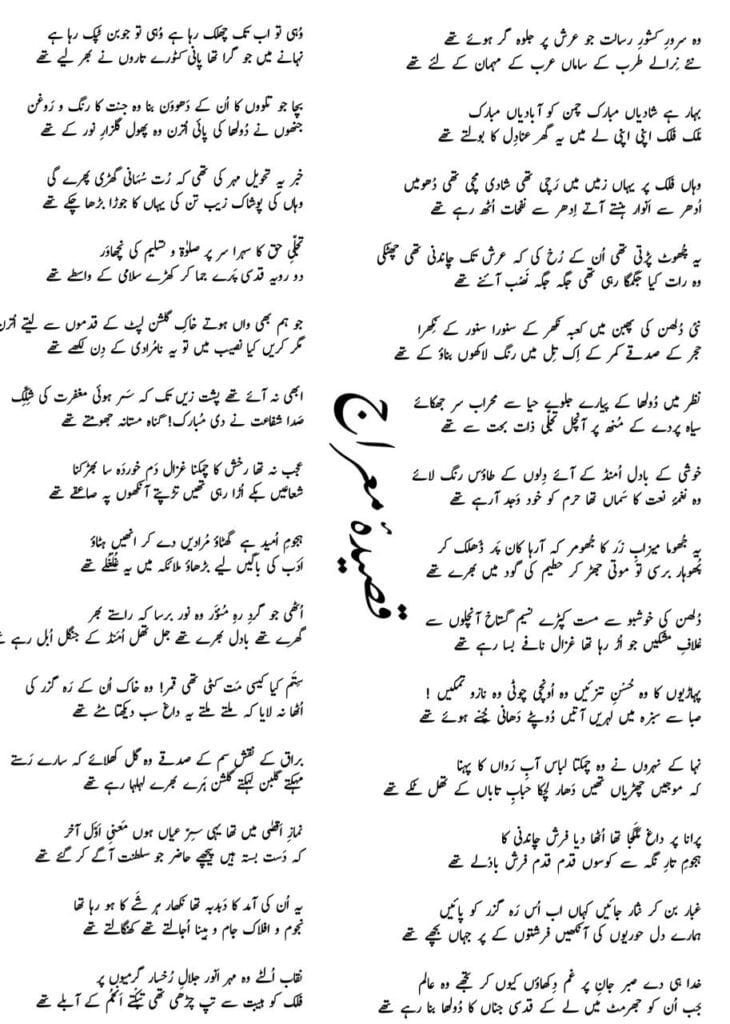 وہ سرورِ کشورِ رسالت جو عرش پر جلوہ گر ہوئے تھے
نئے نرالے طرب کے ساماں عرب کے مہمان کے لئے تھے
بہار ہے شادیاں مبارک چمن کو آبادیاں مبارک
مَلک فلک اپنی اپنی لے میں یہ گھر عنادِل کا بولتے تھے
وہاں فلک پر یہاں زمیں میں رَچی تھی شادی مچی تھی دُھومیں
اُدھر سے اَنوار ہنستے آتے اِدھر سے نفحات اُٹھ رہے تھے
یہ چُھوٹ پڑتی تھی اُن کے رُخ کی کہ عرش تک چاندنی تھی چھٹکی
وہ رات کیا جگمگا رہی تھی جگہ جگہ نَصْب آئنے تھے
نئی دُلھن کی پھبن میں کعبہ نکھر کے سنورا سنور کے نِکھرا
حجر کے صدقے کمر کے اِک تِل میں رنگ لاکھوں بناؤ کے تھے
نظر میں دُولھا کے پیارے جلوے حیا سے محراب سر جھکائے
سیاہ پردے کے مُنھ پر آنچل تجلّی ذات بحت سے تھے
خوشی کے بادل اُمنڈ کے آئے دِلوں کے طاؤس رنگ لائے
وہ نغمۂ نعت کا سَماں تھا حرم کو خود وَجد آرہے تھے
یہ جُھوما میزابِ زَر کا جُھومر کہ آرہا کان پَر ڈھلک کر
پُھوہار برسی تو موتی جھڑ کر حطیم کی گود میں بھرے تھے
دُلھن کی خوشبو سے مست کپڑے نسیمِ گستاخ آنچلوں سے
غلافِ مشکیں جو اُڑ رہا تھا غزال نافے بسا رہے تھے
پہاڑیوں کا وہ حُسْنِ تزئیں وہ اُونچی چوٹی وہ نازو تمکیں !
صبا سے سبزہ میں لہریں آتیں دُوپٹے دَھانی چُنے ہوئے تھے
نہا کے نہروں نے وہ چمکتا لباس آبِ رَواں کا پہنا
کہ موجیں چھڑیاں تھیں دَھار لچکا حبابِ تاباں کے تَھل ٹکے تھے
پرانا پر داغ مَلگجا تھا اُٹھا دیا فرش چاندنی کا
ہجومِ تارِ نگہ سے کوسوں قدم قدم فرش باؤلے تھے
غبار بن کر نثار جائیں کہاں اب اُس رَہ گزر کو پائیں
ہمارے دل حوریوں کی آنکھیں فرشتوں کے پر جہاں بچھے تھے
خدا ہی دے صبر جانِ پر غم دِکھاؤں کیوں کر تجھے وہ عالم
جب اُن کو جھرمٹ میں لے کے قدسی جناں کا دُولھا بنا رہے تھے
قصیدۂ معراج
وُہی تو اب تک چھلک رہا ہے وُہی تو جوبن ٹپک رہا ہے
نہانے میں جو گرا تھا پانی کٹورے تاروں نے بھر لیے تھے
بچا جو تلووں کا اُن کے دَھووَن بنا وہ جنت کا رنگ و رَوغن
جنھوں نے دُولھا کی پائی اُترن وہ پھول گلزارِ نور کے تھے
خبر یہ تحویل مہر کی تھی کہ رُت سُہانی گھڑی پھرے گی
وہاں کی پوشاک زیب تن کی یہاں کا جوڑا بڑھا چکے تھے
تجلّیِ حق کا سہرا سر پر صلوٰۃ و تسلیم کی نچھاوَر
دو رویہ قدسی پَرے جما کر کھڑے سلامی کے واسطے تھے
جو ہم بھی واں ہوتے خاکِ گلشن لپٹ کے قدموں سے لیتے اُترن
مگر کریں کیا نصیب میں تو یہ نامُرادی کے دِن لکھے تھے
ابھی نہ آئے تھے پشت زیں تک کہ سَر ہوئی مغفرت کی شِلِّک
صَدا شفاعت نے دی مُبارک! گناہ مستانہ جھومتے تھے
عجب نہ تھا رخش کا چمکنا غزال دَم خوردَہ سا بھڑکنا
شعاعیں بکے اُڑا رہی تھیں تڑپتے آنکھوں پہ صاعقے تھے
ہجومِ اُمید ہے گھٹاؤ مُرادیں دے کر انھیں ہٹاؤ
اَدَب کی باگیں لیے بڑھاؤ ملائکہ میں یہ غُلغُلے تھے
اُٹھی جو گردِ رہِ مُنَوَّر وہ نور برسا کہ راستے بھر
گھرے تھے بادل بھرے تھے جل تھل اُمَنڈ کے جنگل اُبل رہے
سِتَم کیا کیسی مَت کٹی تھی قمر! وہ خاک اُن کے رَہ گزر کی
اُٹھا نہ لایا کہ ملتے ملتے یہ داغ سب دیکھتا مٹے تھے
براق کے نقشِ سم کے صدقے وہ گل کھلائے کہ سارے رَستے
مہکتے گلبن لہکتے گلشن ہَرے بھرے لہلہا رہے تھے
نمازِ اقصٰی میں تھا یہی سِرّ عیاں ہوں مَعنیِ اَوَّل آخر
کہ دَست بستہ ہیں پیچھے حاضر جو سلطنت آگے کر گئے تھے
یہ اُن کی آمد کا دَبدبہ تھا نکھار ہر شَے کا ہو رہا تھا
نجوم و افلاک جام و مینا اُجالتے تھے کھنگالتے تھے
نقاب اُلٹے وہ مہرِ انور جلالِ رُخسار گرمیوں پر
فلک کو ہیبت سے تپ چڑھی تھی تپکتے اَنجُم کے آبلے تھے